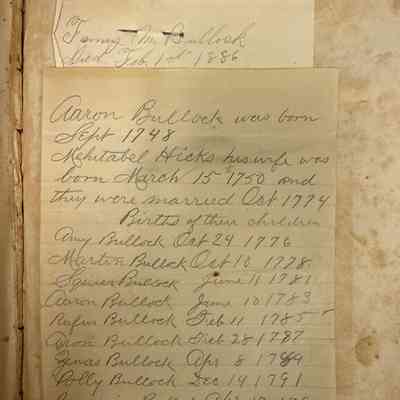 Fanny M. Bullock
Died Feb. 1st 1886
Aaron Bullock was born
Sept 1748
Mehitabel Hicks his wife was
born March 15 1750 and
they were married Oct 1774
Births of their children
Amy Bullock Oct 24 1776
Martin Bullock Oct 10 1778
Squier Bullock June 11 1781
Aaron Bullock June 10 1783
Rufus Bullock Feb 11 1785
Aaron Bullock Feb 28 1787
Zenas Bullock Apr 8 1789
Polly Bullock Dec 14 1791